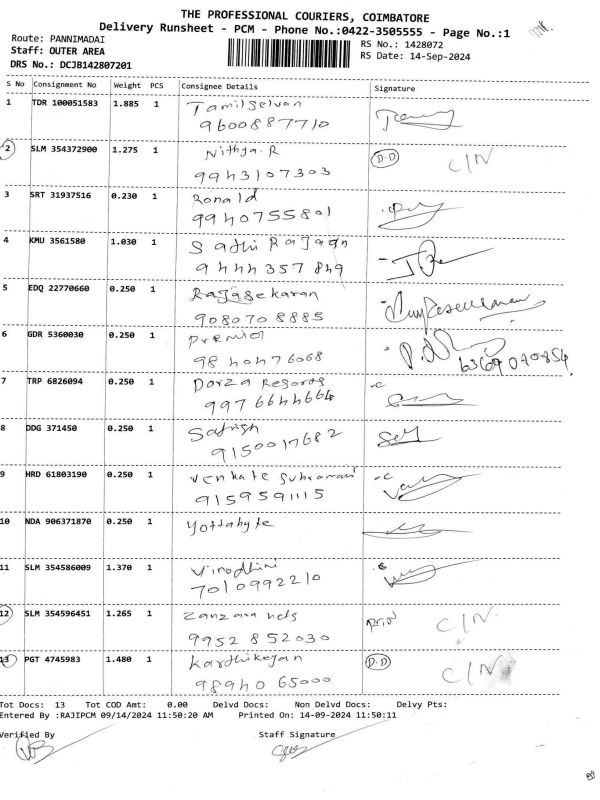 THE PROFESSIONAL COURIERS, COIMBATORE
Delivery Runsheet - PCM - Phone No.:0422-3505555 - Page No.:1
Route: PANNIMADAI
RS No.: 1428072
Staff: OUTER AREA
RS Date: 14-Sep-2024
DRS No.: DCJB142807201
S No Consignment No Weight PCS Consignee Details Signature
1 TDR 100051583 1.885 1 Tamilselvan
9600887710
2 SLM 354372900 1.275 1 Nithya.R D.D C/N
9943107303
3 SRT 31937516 0.230 1 Ronald
9940755801
4 KMU 3561580 1.030 1 Sathi Rajan
9444357849
5 EDQ 22770660 0.250 1 Rajasekaran
9080708885
6 GDR 5360030 0.250 1 Premier
9840476068
7 TRP 6826094 0.250 1 Dorza Resorts
9976644664
8 DDG 371450 0.250 1 Satish
9150017682
9 HRD 61803190 0.250 1 Venkate Subramani
9159591115
10 NDA 906371870 0.250 1 Yottabyte
11 SLM 354586009 1.370 1 Vinodhini
7010992210
12 SLM 354596451 1.265 1 Zanzara nets C/N
9952852030
13 PGT 4745983 1.480 1 Karthikeyan D.D C/N
9894065000
Tot Docs: 13 Tot COD Amt: 0.00 Delvd Docs: Non Delvd Docs: Delvy Pts:
Entered By :RAJIPCM 09/14/2024 11:50:20 AM Printed On: 14-09-2024 11:50:11
Verified By Staff Signature